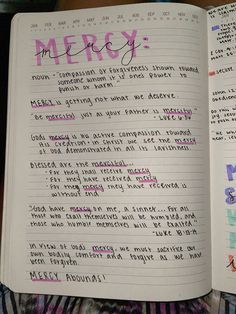 JAN FEB MAR APR MAY JUN JUL AUG SEP OCT NOV DEC
MERCY:
mercy
noun - "compassion or forgiveness shown toward
someone whom is is one's power to
punish or harm"
MERCY is getting not what we deserve.
"Be merciful just as your Father is merciful"
- Luke 6:36
God's mercy is his active compassion toward
His creation - in Christ we see the mercy
of God demonstrated in all its lavishness
Blessed are the merciful...
· For they shall receive mercy
· For they have received mercy
· For the mercy they have received is
without end
"God have mercy on me, a sinner... For all
those who exalt themselves will be humbled, and
those who humble themselves will be exalted."
- Luke 18:13-14
In view of God's mercy, we must sacrifice our
own bodily comfort and forgive as we have
been forgiven.
MERCY Abounds!